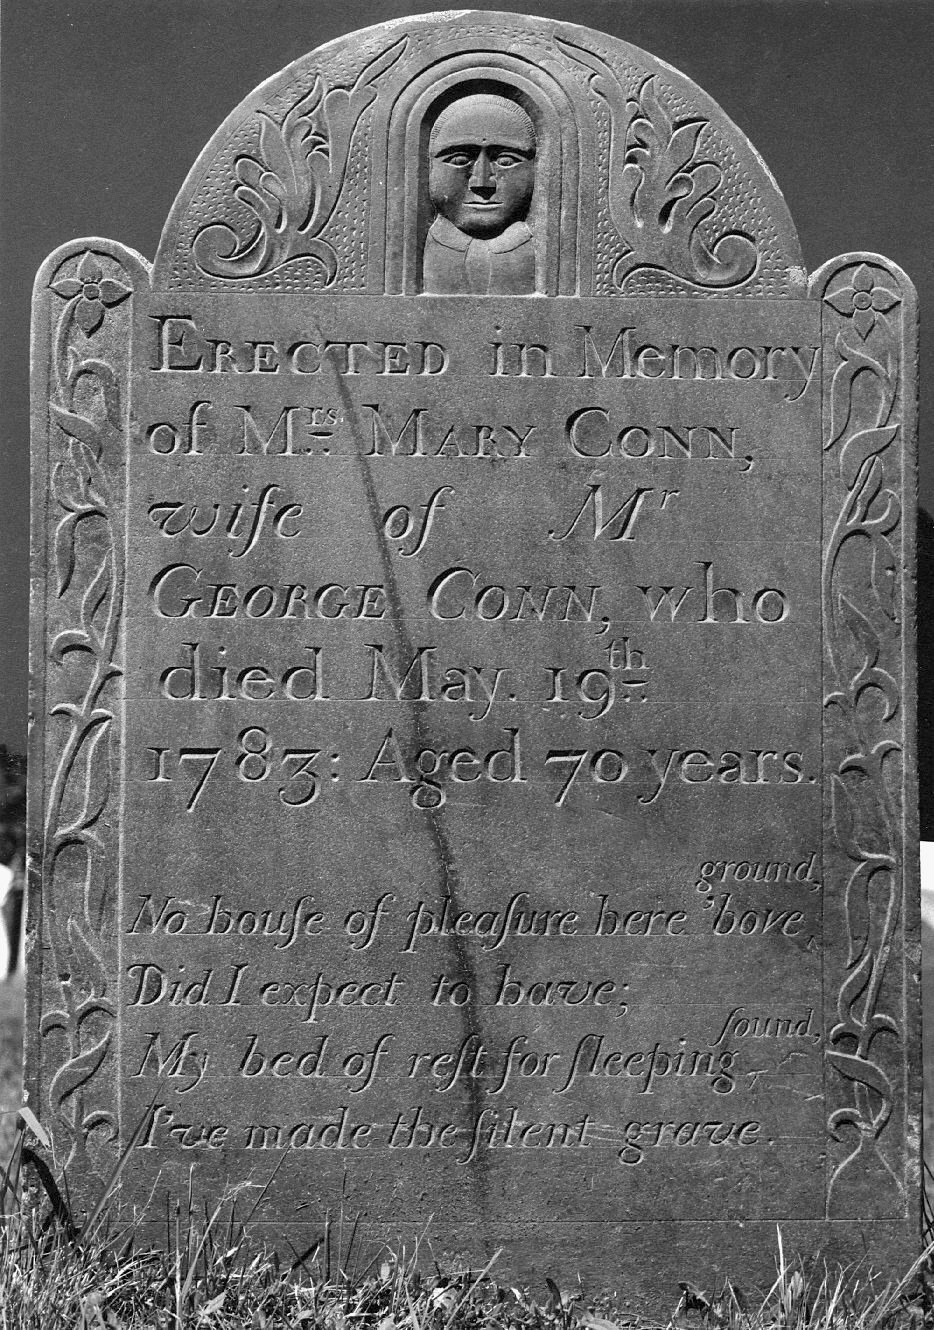 ERECTED in Memory
of Mrs. MARY CONN,
wife of Mr
GEORGE CONN, who
died May. 19th.
1783: Aged 70 years.
No houſe of pleaſure here 'bove ground,
Did I expect to have;
My bed of reſt for ſleeping found,
I've made the ſilent grave.